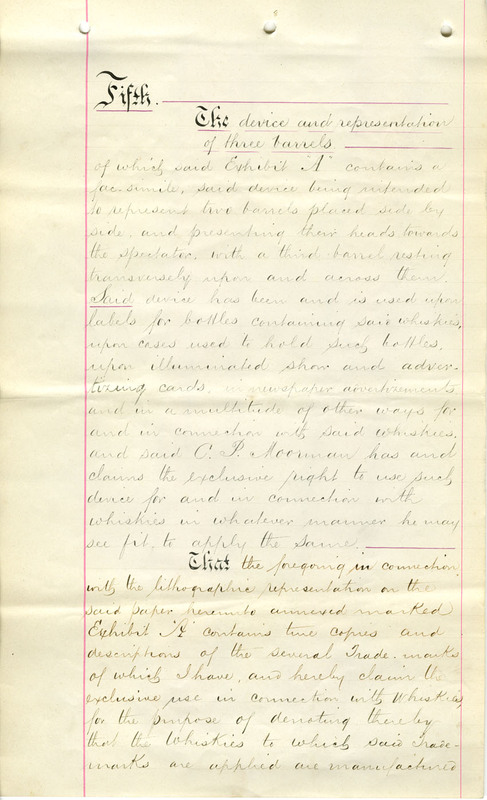 Fifth.
The device and representation
of three barrels
of which said Exhibit "A" contains a
fac-simile, said device being intended
to represent two barrels placed side by
side, and presenting their heads towards
the spectator, with a third barrel resting
transversely upon and across them.
Said device has been and is used upon
labels for bottles containing said whiskies,
upon cases used to hold such bottles,
upon illuminated show and adver-
tizing cards, in newspaper advertizements
and in a multitude of other ways for
and in connection with said whiskies.
and said C. P. Moorman has and
claims the exclusive right to use such
device for and in connection with
whiskies in whatever manner he may
see fit to apply the same.
That the foregoing in connection
with the lithographic representation on the
said paper hereunto annexed marked
Exhibit "A" contains true copies and
descriptions of the several Trade-marks
of which I have, and hereby claim the
exclusive use in connection with Whiskies
for the purpose of denoting thereby
that the Whiskies to which said Trade-
marks are applied are manufactured